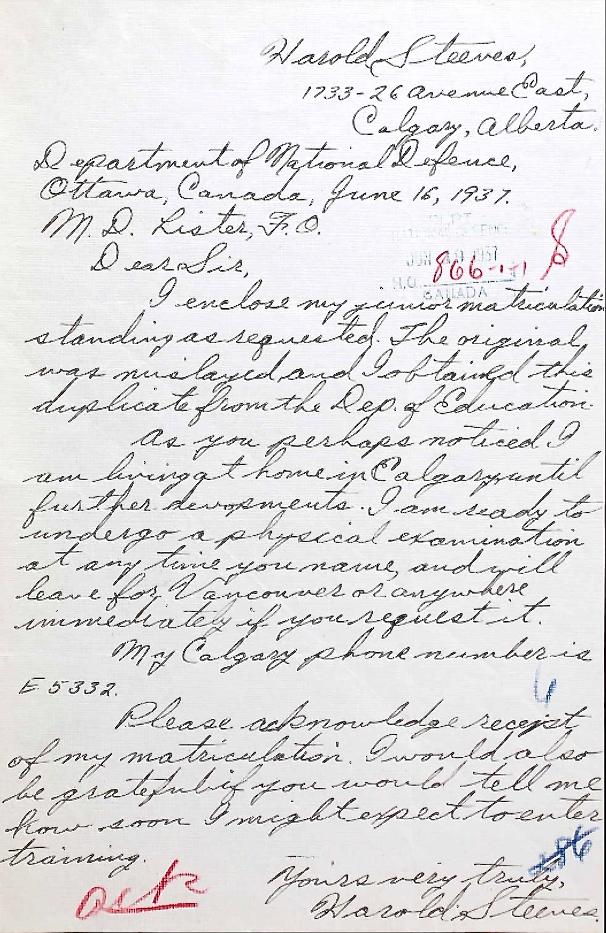 Harold Steeves,
1733-26 Avenue East,
Calgary, Alberta.
Department of National Defence,
Ottawa, Canada, June 16, 1937.
M. D. Lister, F.O.
Dear Sir,
DEPT.
JUN 1937
866-1-1
H.Q.
CANADA
I enclose my junior matriculation
standing as requested. The original
was mislayed and I obtained this
duplicate from the Dep. of Education.
As you perhaps noticed I
am living at home in Calgary until
further devopments. I am ready to
undergo a physical examination
at any time you name, and will
leave for Vancouver or anywhere
immediately if you request it.
My Calgary phone number is
E 5332.
Please acknowledge receipt
of my matriculation. I would also
be grateful if you would tell me
how soon I might expect to enter
training.
Yours very truly,
Harold Steeves.
ack